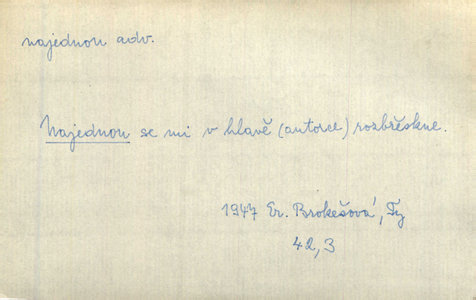 najednou adv.
Najednou se mi v hlavě (autorce) rozbřeskne.
1947 Er. Brokešová, Ty
42,3